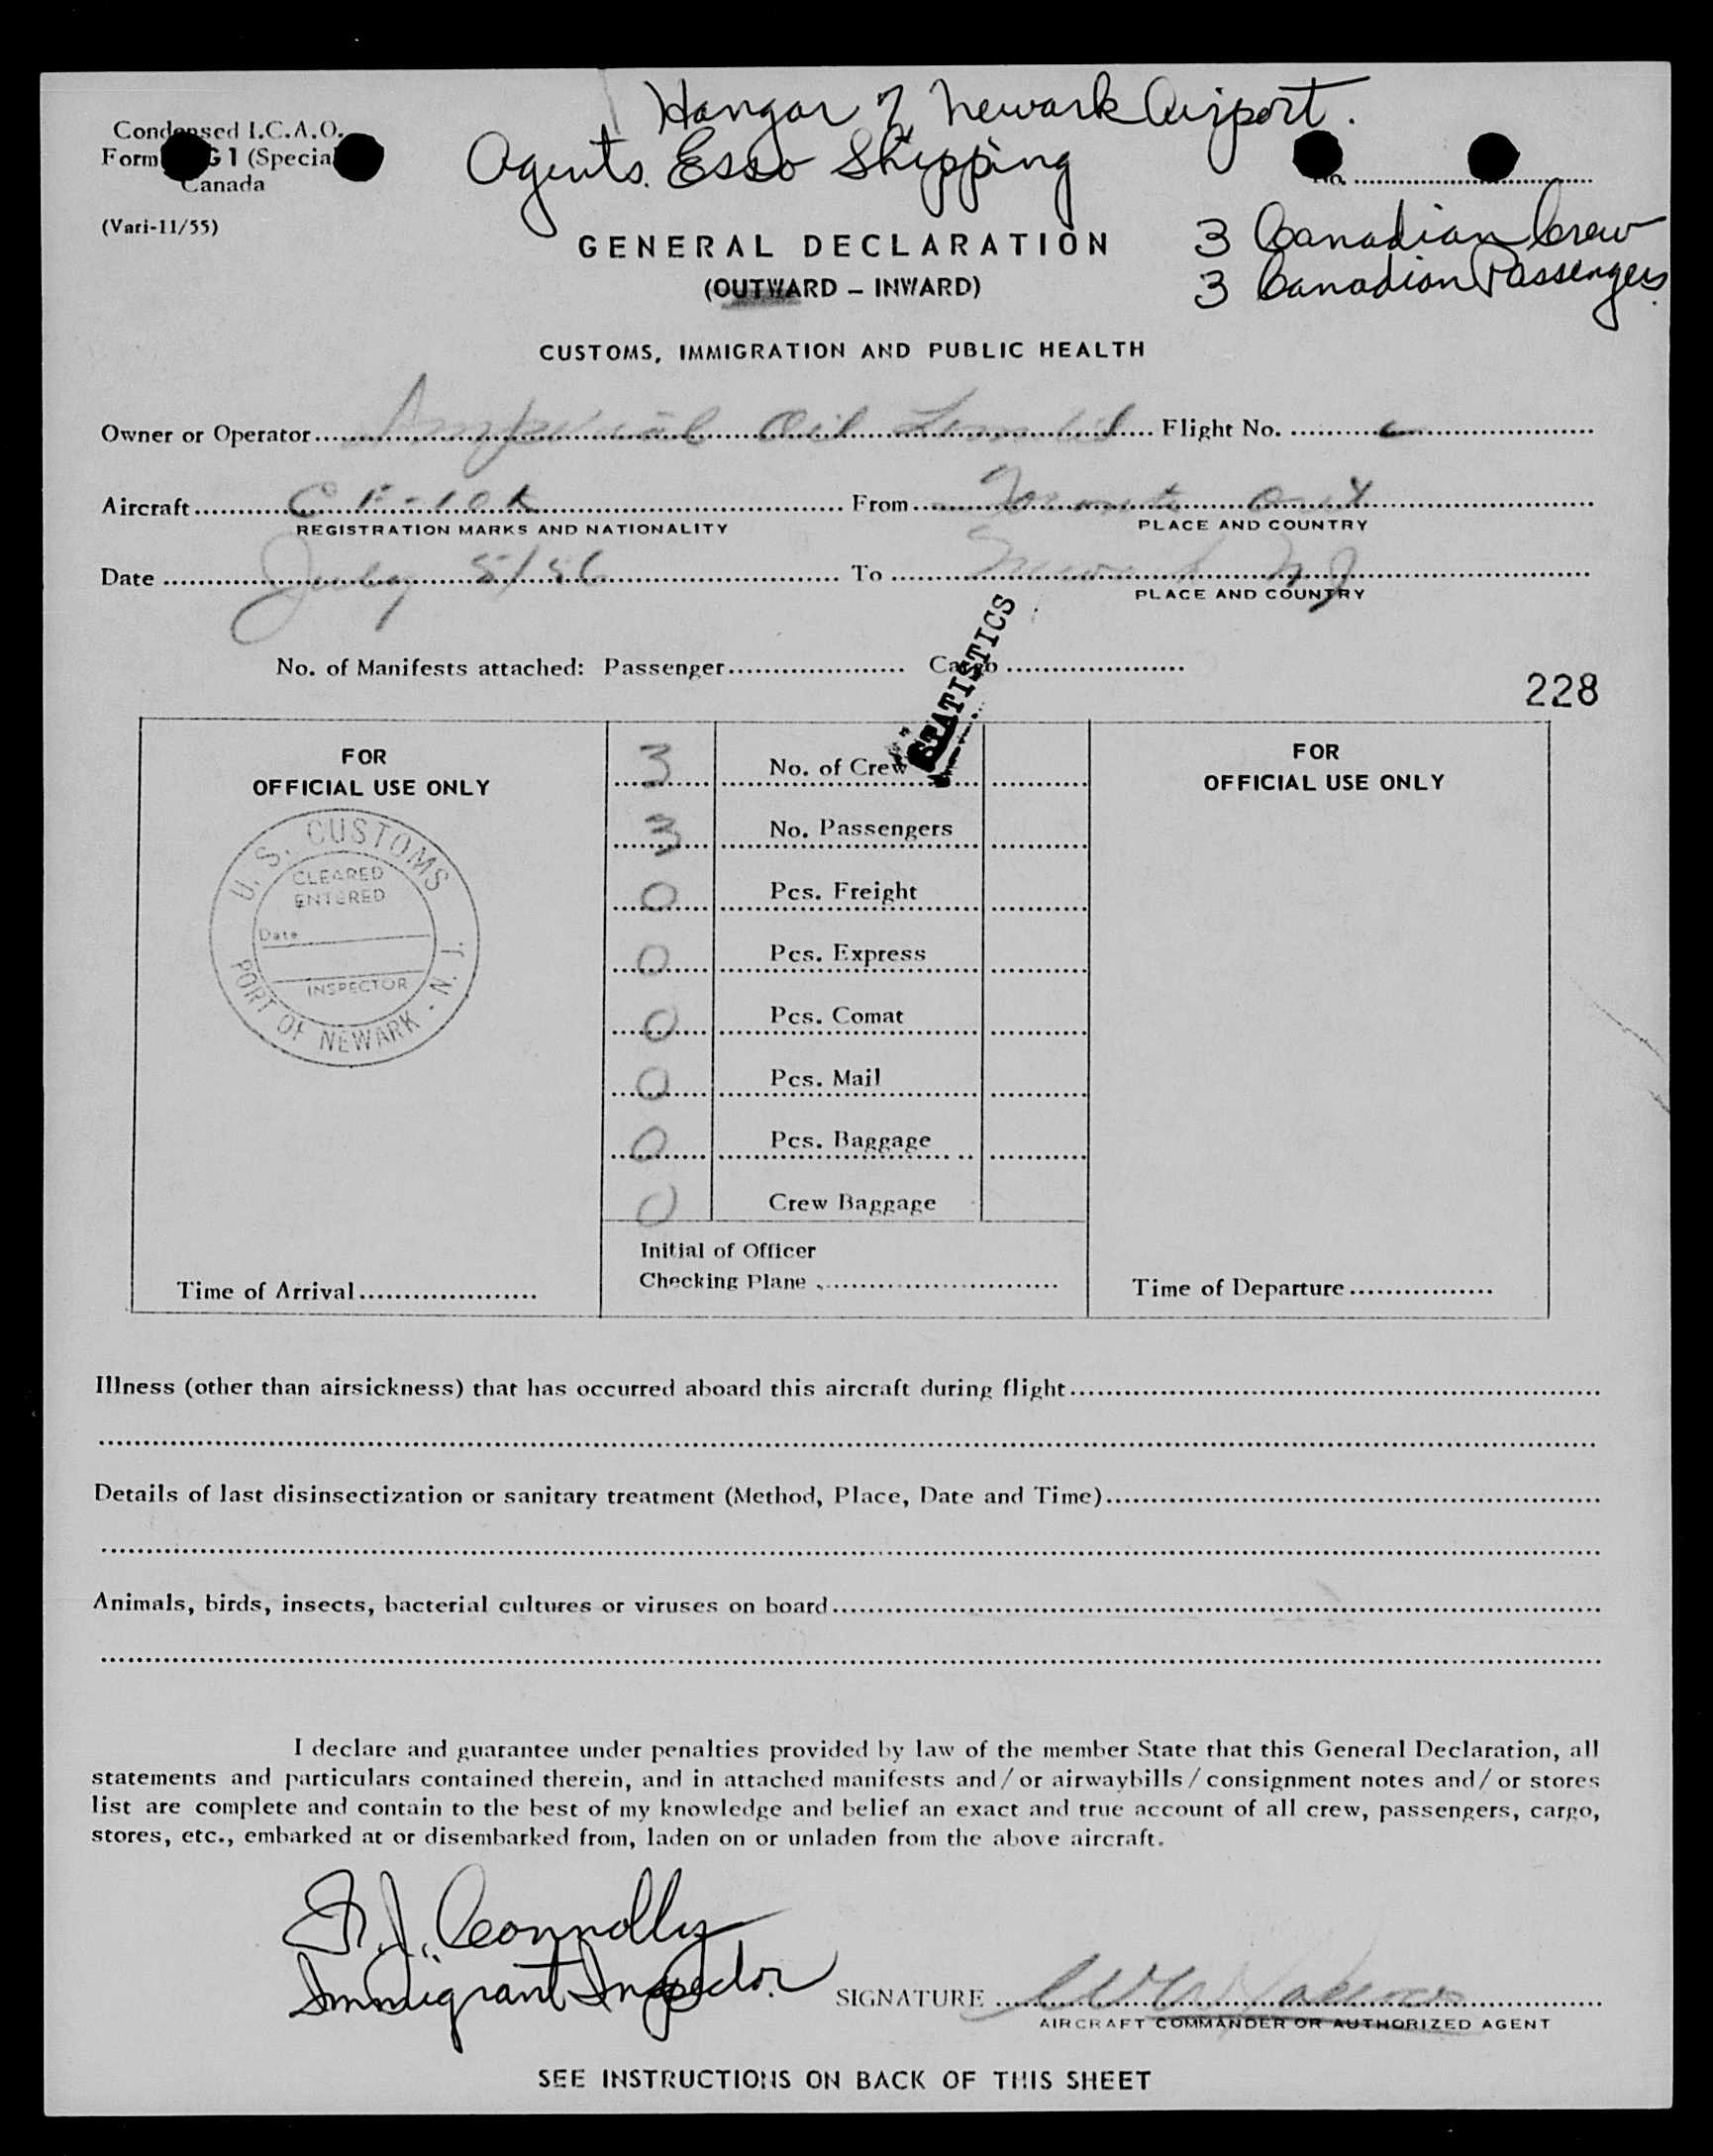 Hangar 7 Newark Airport.
Agents. Esso Shipping
Condensed I.C.A.O.
Form G1 (Special
Canada
(Vari-11/55)
No.
3 Canadian Crew
3 Canadian Passengers
GENERAL DECLARATION
(OUTWARD – INWARD)
CUSTOMS, IMMIGRATION AND PUBLIC HEALTH
Owner or Operator Imperial Oil Limited Flight No.
Aircraft CF-IOK From Toronto Ont
REGISTRATION MARKS AND NATIONALITY PLACE AND COUNTRY
Date July 5/56 To Newark NJ
PLACE AND COUNTRY
No. of Manifests attached: Passenger Cargo
STATISTICS
228
FOR
OFFICIAL USE ONLY
U.S. CUSTOMS
CLEARED
ENTERED
Date
INSPECTOR
PORT OF NEWARK - N.J.
Time of Arrival
3 No. of Crew
3 No. Passengers
0 Pcs. Freight
0 Pcs. Express
0 Pcs. Comat
0 Pcs. Mail
0 Pcs. Baggage
0 Crew Baggage
Initial of Officer
Checking Plane
FOR
OFFICIAL USE ONLY
Time of Departure
Illness (other than airsickness) that has occurred aboard this aircraft during flight
Details of last disinsectization or sanitary treatment (Method, Place, Date and Time)
Animals, birds, insects, bacterial cultures or viruses on board
I declare and guarantee under penalties provided by law of the member State that this General Declaration, all
statements and particulars contained therein, and in attached manifests and/or airwaybills/consignment notes and/or stores
list are complete and contain to the best of my knowledge and belief an exact and true account of all crew, passengers, cargo,
stores, etc., embarked at or disembarked from, laden on or unladen from the above aircraft.
J. Connolly
Immigrant Inspector.
SIGNATURE
AIRCRAFT COMMANDER OR AUTHORIZED AGENT
SEE INSTRUCTIONS ON BACK OF THIS SHEET